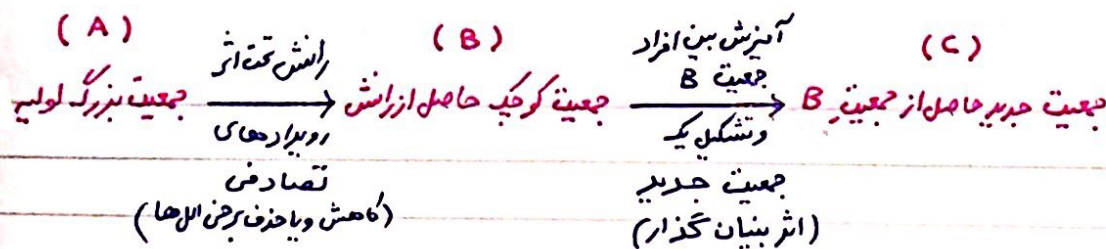 (A)
جمعیت بزرگ اولیه
رانش تحت اثر
رویدادهای
تصادفی
(کاهش و یا حذف برخی الل‌ها)
(B)
جمعیت کوچک حاصل از رانش
آمیزش بین افراد
جمعیت B
و تشکیل یک
جمعیت جدید
(اثر بنیان گذار)
(C)
جمعیت جدید حاصل از جمعیت B